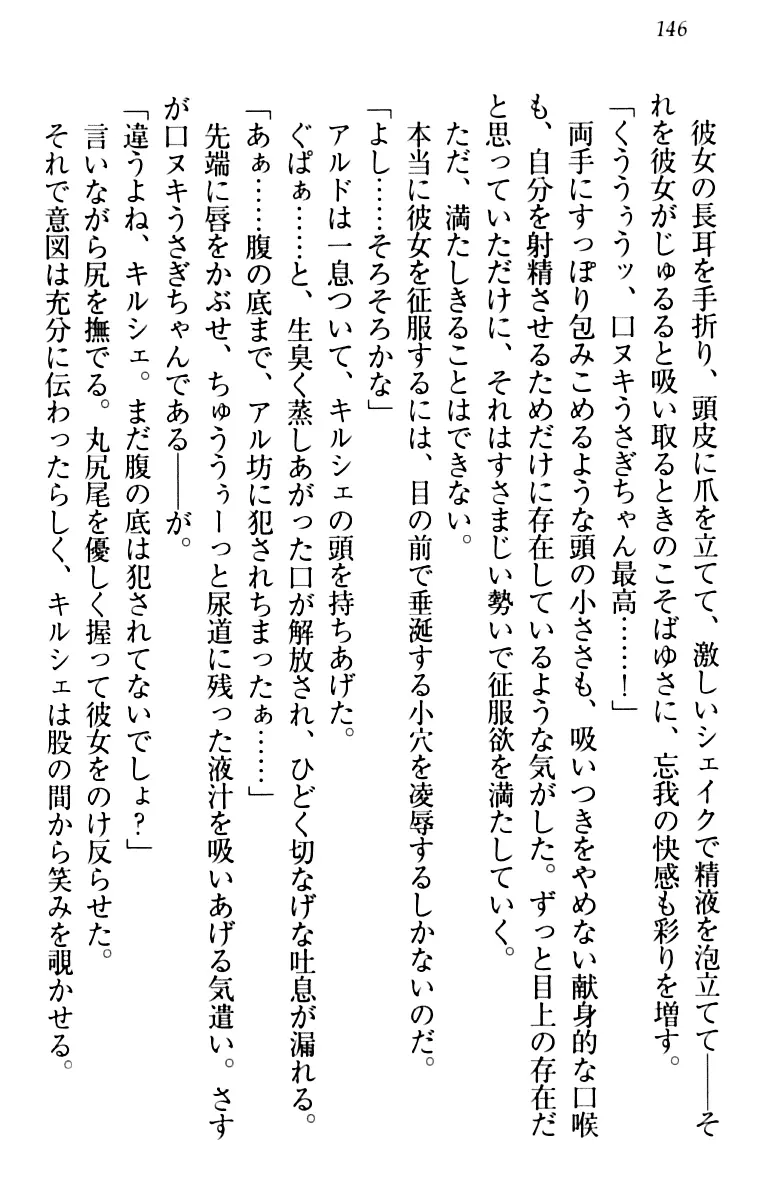 146
彼女の長耳を手折り、頭皮に爪を立てて、激しいシェイクで精液を泡立てて――そ
れを彼女がじゅるると吸い取るときのこそばゆさに、忘我の快感も彩りを増す。
「くううぅうッ、口ヌキうさぎちゃん最高……！」
両手にすっぽり包みこめるような頭の小ささも、吸いつきをやめない献身的な口喉
も、自分を射精させるためだけに存在しているような気がした。ずっと目上の存在だ
と思っていただけに、それはすさまじい勢いで征服欲を満たしていく。
ただ、満たしきることはできない。
本当に彼女を征服するには、目の前で垂涎する小穴を凌辱するしかないのだ。
「よし……そろそろかな」
アルドは一息ついて、キルシェの頭を持ちあげた。
ぐぱぁ……と、生臭く蒸しあがった口が解放され、ひどく切なげな吐息が漏れる。
「あぁ……腹の底まで、アル坊に犯されちまったぁ……」
先端に唇をかぶせ、ちゅううぅーっと尿道に残った液汁を吸いあげる気遣い。さす
が口ヌキうさぎちゃんである――が。
「違うよね、キルシェ。まだ腹の底は犯されてないでしょ？」
言いながら尻を撫でる。丸尻尾を優しく握って彼女をのけ反らせた。
それで意図は充分に伝わったらしく、キルシェは股の間から笑みを覗かせる。